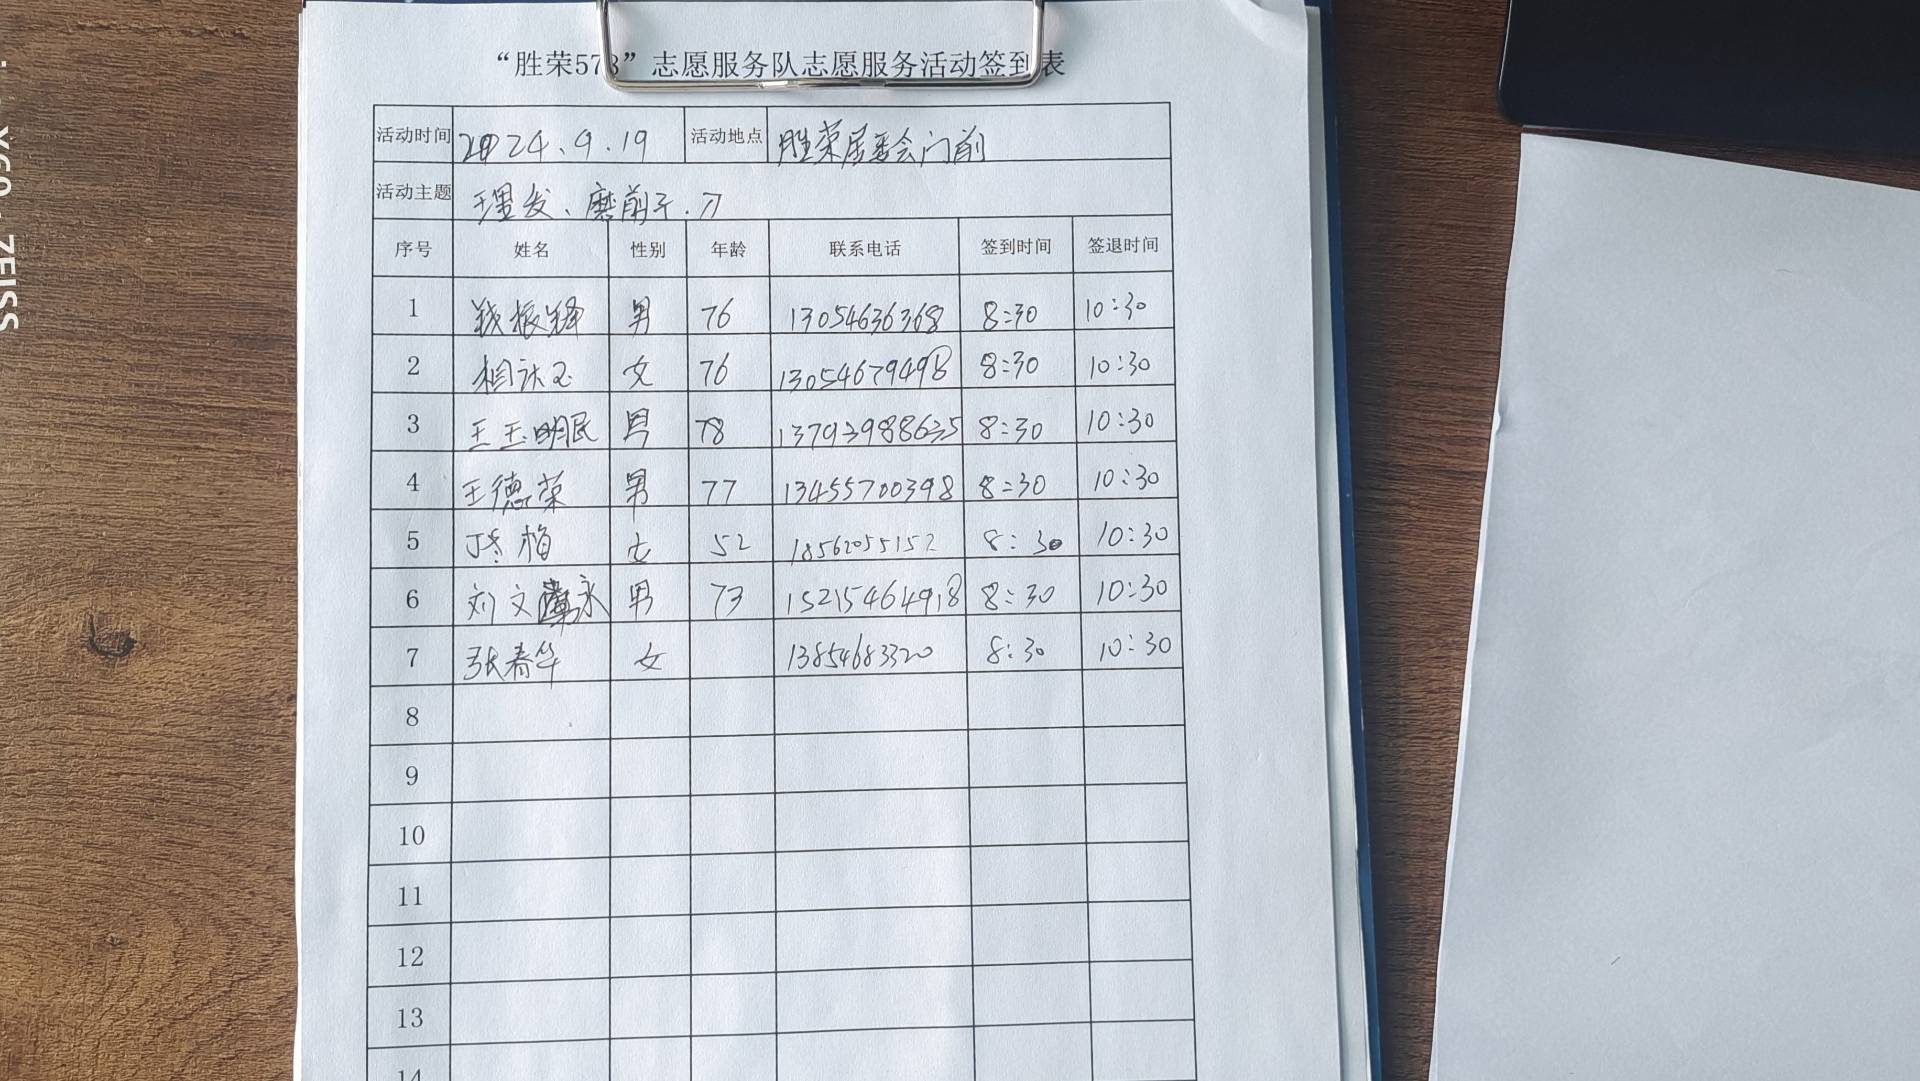 “胜荣578”志愿服务队志愿服务活动签到表
活动时间 2024.9.19 活动地点 胜荣居委会门前
活动主题 理发、磨剪子.刀
序号 姓名 性别 年龄 联系电话 签到时间 签退时间
1 钱振锋 男 76 13054636368 8:30 10:30
2 女 76 13054679498 8:30 10:30
3 王玉明民 男 78 13793988635 8:30 10:30
4 王德荣 男 77 13455700398 8:30 10:30
5 女 52 18562055152 8:30 10:30
6 刘文永 男 73 15215464918 8:30 10:30
7 张春华 女 13854683320 8:30 10:30
8
9
10
11
12
13
14
X60·ZEISS